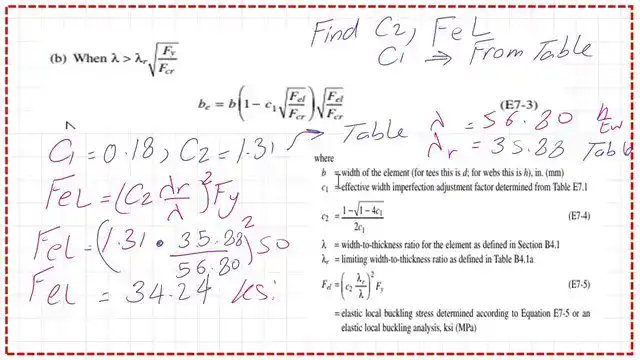 Find C2, FeL
C1 ⇒ From Table
(b) When λ > λr√(Fy/Fcr)
be = b(1 − c1√(Fel/Fcr))√(Fel/Fcr)
(E7-3)
→ Table λ = 56.80 h/tw
λr = 35.88 Table
C1 = 0.18, C2 = 1.31
FeL = (C2 λr/λ)² Fy
FeL = (1.31 • 35.88/56.80)² 50
FeL = 34.24 ksi
where
b = width of the element (for tees this is d; for webs this is h), in. (mm)
c1 = effective width imperfection adjustment factor determined from Table E7.1
c2 = (1 − √(1 − 4c1))/(2c1) (E7-4)
λ = width-to-thickness ratio for the element as defined in Section B4.1
λr = limiting width-to-thickness ratio as defined in Table B4.1a
Fel = (c2 λr/λ)² Fy (E7-5)
= elastic local buckling stress determined according to Equation E7-5 or an
elastic local buckling analysis, ksi (MPa)